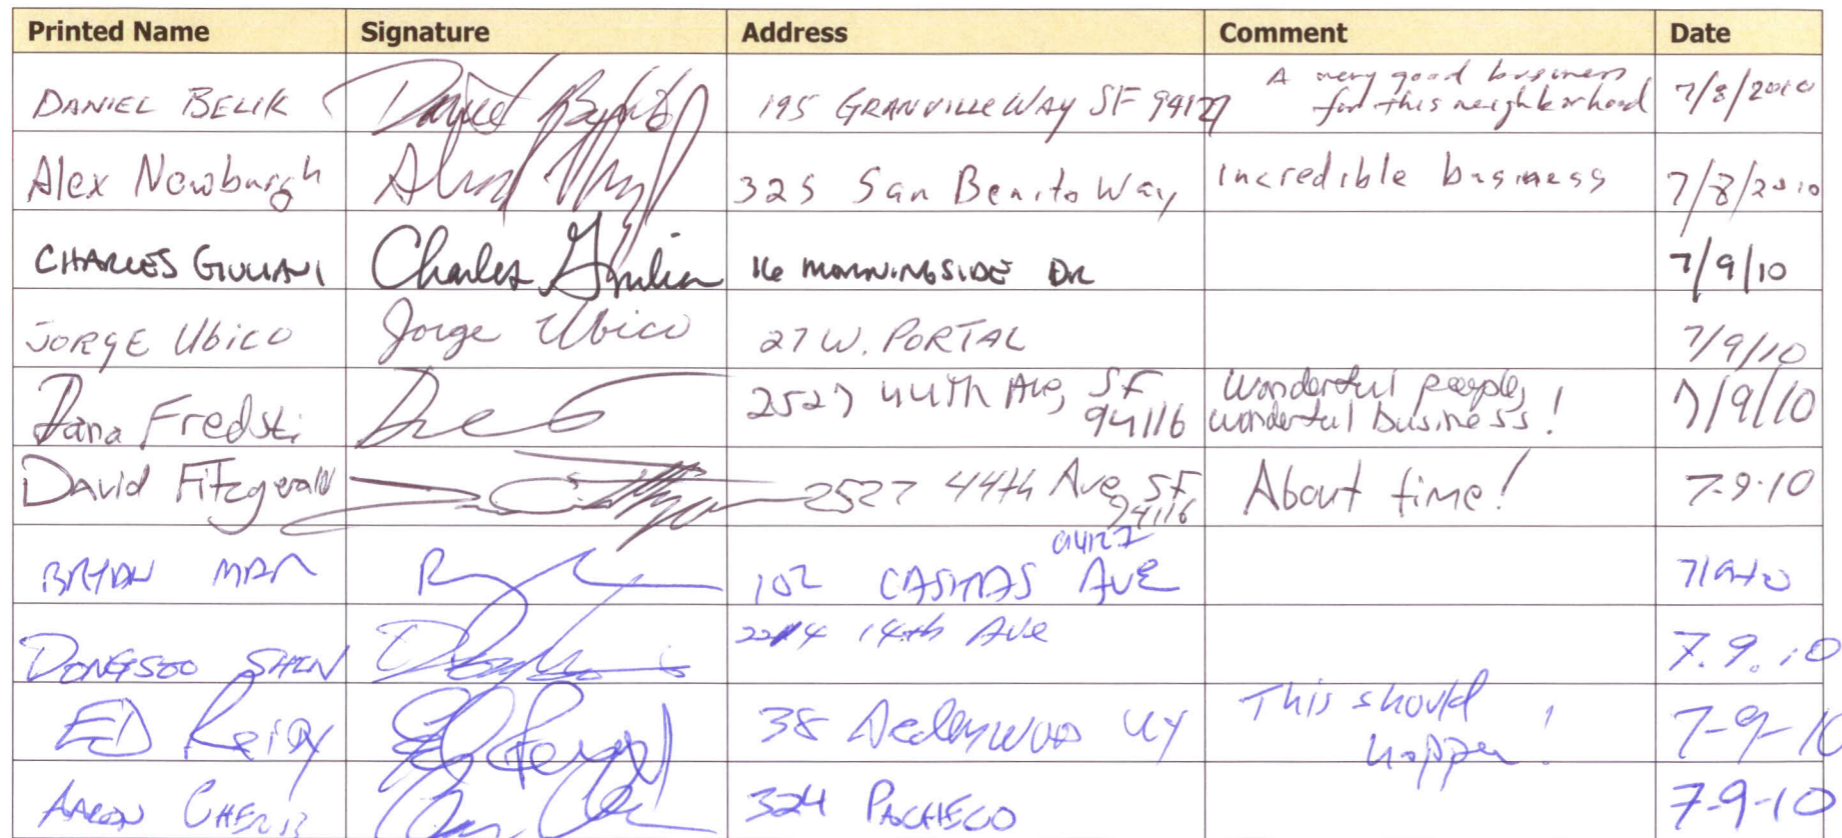 Printed Name Signature Address Comment Date
DANIEL BELIK 195 GRANVILLE WAY SF 94127 A very good business for this neighborhood 7/8/2010
Alex Newburgh 325 San Benito Way Incredible business 7/8/2010
CHARLES GIULIANI Charles Giuliani 16 MORNINGSIDE DR 7/9/10
JORGE UBICO Jorge Ubico 27 W. PORTAL 7/9/10
Dana Fredsti 2527 44th Ave, SF 94116 Wonderful people, wonderful business! 7/9/10
David Fitzgerald 2527 44th Ave SF 94116 About time! 7.9.10
BRYAN MAR 102 CASITAS AVE 94127 7/9/10
DONGSOO SHIN 14th Ave 7.9.10
ED Reidy 38 WAY This should happen! 7-9-10
AARON 324 PACHECO 7-9-10